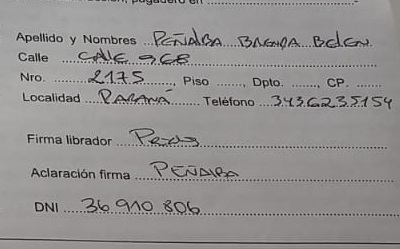 pagadero en
Apellido y Nombres PEÑALBA BRENDA BELEN
Calle CALLE 968
Nro. 2175, Piso ........, Dpto. ........, CP. ........
Localidad PARANÁ Teléfono 3436235154
Firma librador
Aclaración firma PEÑALBA
DNI 36 910 806